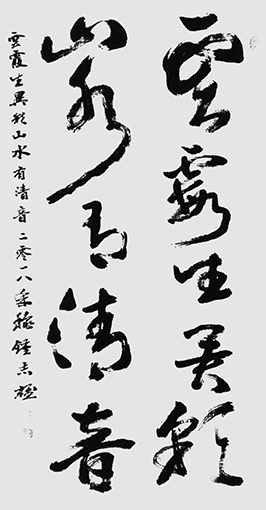 雲霞生異彩
山水有清音
雲霞生異彩山水有清音二零一八秊穐鍾志